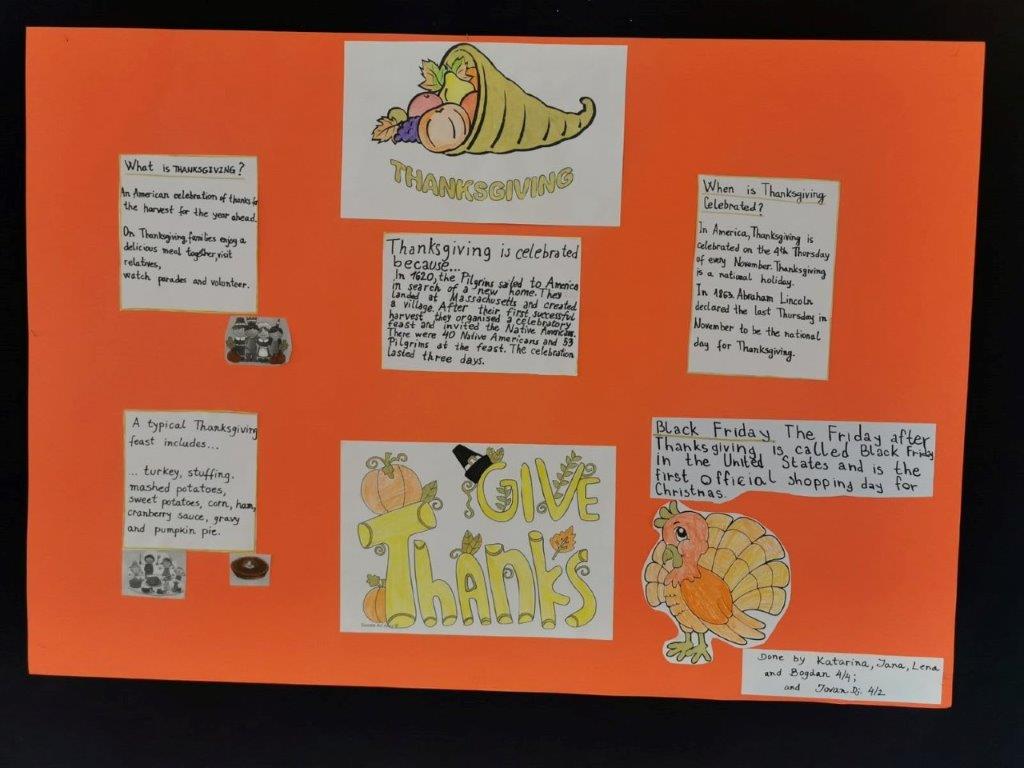 THANKSGIVING
What is THANKSGIVING?
An American celebration of thanks for
the harvest for the year ahead.
On Thanksgiving, families enjoy a
delicious meal together, visit
relatives,
watch parades and volunteer.
Thanksgiving is celebrated
because...
In 1620, the Pilgrims sailed to America
in search of a new home. They
landed at Massachusetts and created
a village. After their first successful
harvest they organised a celebratory
feast and invited the Native Americans.
There were 40 Native Americans and 53
Pilgrims at the feast. The celebration
lasted three days.
When is Thanksgiving
Celebrated?
In America, Thanksgiving is
celebrated on the 4th Thursday
of every November. Thanksgiving
is a national holiday.
In 1863. Abraham Lincoln
declared the last Thursday in
November to be the national
day for Thanksgiving.
A typical Thanksgiving
feast includes...
... turkey, stuffing.
mashed potatoes,
sweet potatoes, corn, ham,
cranberry sauce, gravy
and pumpkin pie.
GIVE
Thanks
Black Friday The Friday after
Thanksgiving is called Black Friday
In the United States and is the
first official shopping day for
Christmas.
Done by Katarina, Jana, Lena
and Bogdan 4/4;
and Jovan Dj. 4/2